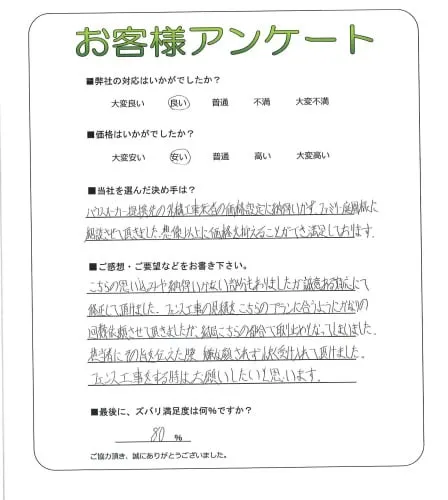 お客様アンケート
■弊社の対応はいかがでしたか？
大変良い 良い 普通 不満 大変不満
■価格はいかがでしたか？
大変安い 安い 普通 高い 大変高い
■当社を選んだ決め手は？
ハウスメーカー提携先の外構工事業者の価格設定に納得いかず、ファミリー庭園様に
相談させて頂きました。想像以上に価格を抑えることができ満足しております。
■ご感想・ご要望などをお書き下さい。
こちらの思い込みや納得いかない部分もありましたが誠意ある対応にて
修正して頂けました。フェンス工事の見積をこちらのプランに合うようにかなりの
回数依頼させて頂きましたが、結局こちらの都合で取り止めとなってしまいました。
担当者にその旨を伝えた際、嫌な顔されず快く受け入れて頂けました。
フェンス工事をする時は又お願いしたいと思います。
■最後に、ズバリ満足度は何％ですか？
80 ％
ご協力頂き、誠にありがとうございました。